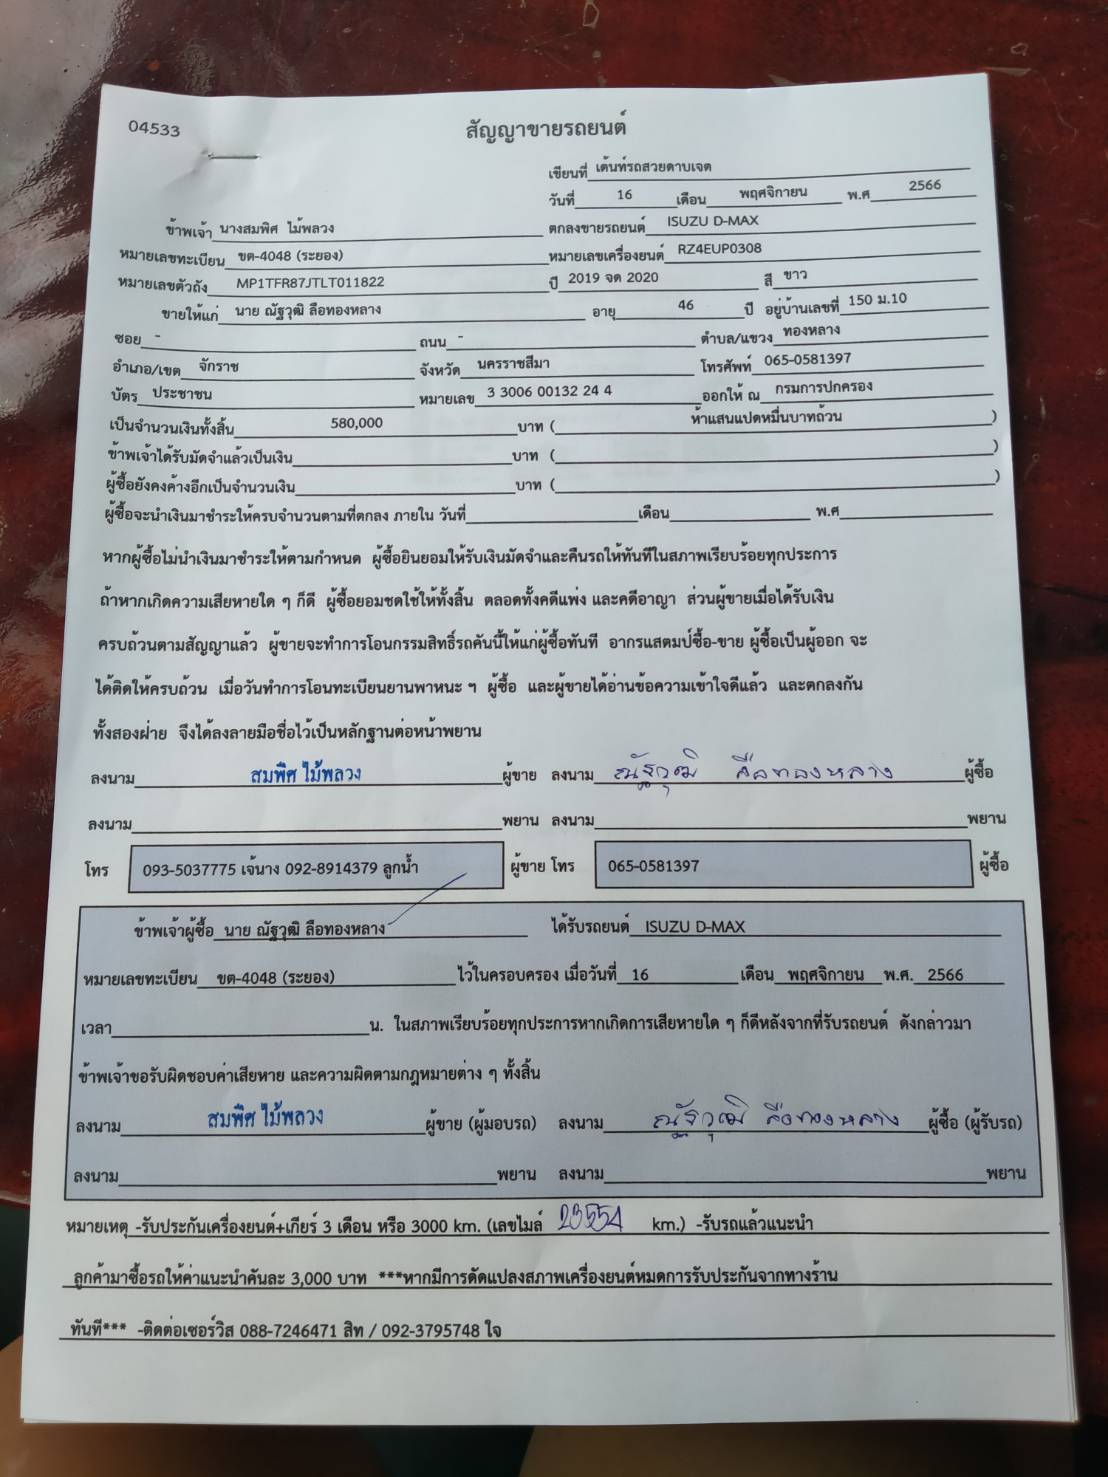 04533
สัญญาขายรถยนต์
เขียนที่ เต้นท์รถสวยดาบเจต
วันที่ 16 เดือน พฤศจิกายน พ.ศ 2566
ข้าพเจ้า นางสมพิศ ไม้พลวง ตกลงขายรถยนต์ ISUZU D-MAX
หมายเลขทะเบียน ขต-4048 (ระยอง) หมายเลขเครื่องยนต์ RZ4EUP0308
หมายเลขตัวถัง MP1TFR87JTLT011822 ปี 2019 จด 2020 สี ขาว
ขายให้แก่ นาย ณัฐวุฒิ ลือทองหลาง อายุ 46 ปี อยู่บ้านเลขที่ 150 ม.10
ซอย - ถนน - ตำบล/แขวง ทองหลาง
อำเภอ/เขต จักราช จังหวัด นครราชสีมา โทรศัพท์ 065-0581397
บัตร ประชาชน หมายเลข 3 3006 00132 24 4 ออกให้ ณ กรมการปกครอง
เป็นจำนวนเงินทั้งสิ้น 580,000 บาท ( ห้าแสนแปดหมื่นบาทถ้วน )
ข้าพเจ้าได้รับมัดจำแล้วเป็นเงิน บาท ( )
ผู้ซื้อยังคงค้างอีกเป็นจำนวนเงิน บาท ( )
ผู้ซื้อจะนำเงินมาชำระให้ครบจำนวนตามที่ตกลง ภายใน วันที่ เดือน พ.ศ
หากผู้ซื้อไม่นำเงินมาชำระให้ตามกำหนด ผู้ซื้อยินยอมให้รับเงินมัดจำและคืนรถให้ทันทีในสภาพเรียบร้อยทุกประการ
ถ้าหากเกิดความเสียหายใด ๆ ก็ดี ผู้ซื้อยอมชดใช้ให้ทั้งสิ้น ตลอดทั้งคดีแพ่ง และคดีอาญา ส่วนผู้ขายเมื่อได้รับเงิน
ครบถ้วนตามสัญญาแล้ว ผู้ขายจะทำการโอนกรรมสิทธิ์รถคันนี้ให้แก่ผู้ซื้อทันที อากรแสตมป์ซื้อ-ขาย ผู้ซื้อเป็นผู้ออก จะ
ได้ติดให้ครบถ้วน เมื่อวันทำการโอนทะเบียนยานพาหนะ ฯ ผู้ซื้อ และผู้ขายได้อ่านข้อความเข้าใจดีแล้ว และตกลงกัน
ทั้งสองฝ่าย จึงได้ลงลายมือชื่อไว้เป็นหลักฐานต่อหน้าพยาน
ลงนาม สมพิศ ไม้พลวง ผู้ขาย ลงนาม ณัฐวุฒิ ลือทองหลาง ผู้ซื้อ
ลงนาม พยาน ลงนาม พยาน
โทร 093-5037775 เจ้นาง 092-8914379 ลูกน้ำ ผู้ขาย โทร 065-0581397 ผู้ซื้อ
ข้าพเจ้าผู้ซื้อ นาย ณัฐวุฒิ ลือทองหลาง ได้รับรถยนต์ ISUZU D-MAX
หมายเลขทะเบียน ขต-4048 (ระยอง) ไว้ในครอบครอง เมื่อวันที่ 16 เดือน พฤศจิกายน พ.ศ. 2566
เวลา น. ในสภาพเรียบร้อยทุกประการหากเกิดการเสียหายใด ๆ ก็ดีหลังจากที่รับรถยนต์ ดังกล่าวมา
ข้าพเจ้าขอรับผิดชอบค่าเสียหาย และความผิดตามกฎหมายต่าง ๆ ทั้งสิ้น
ลงนาม สมพิศ ไม้พลวง ผู้ขาย (ผู้มอบรถ) ลงนาม ณัฐวุฒิ ลือทองหลาง ผู้ซื้อ (ผู้รับรถ)
ลงนาม พยาน ลงนาม พยาน
หมายเหตุ -รับประกันเครื่องยนต์+เกียร์ 3 เดือน หรือ 3000 km. (เลขไมล์ km.) -รับรถแล้วแนะนำ
ลูกค้ามาซื้อรถให้ค่าแนะนำคันละ 3,000 บาท ***หากมีการดัดแปลงสภาพเครื่องยนต์หมดการรับประกันจากทางร้าน
ทันที*** -ติดต่อเซอร์วิส 088-7246471 สิท / 092-3795748 ใจ